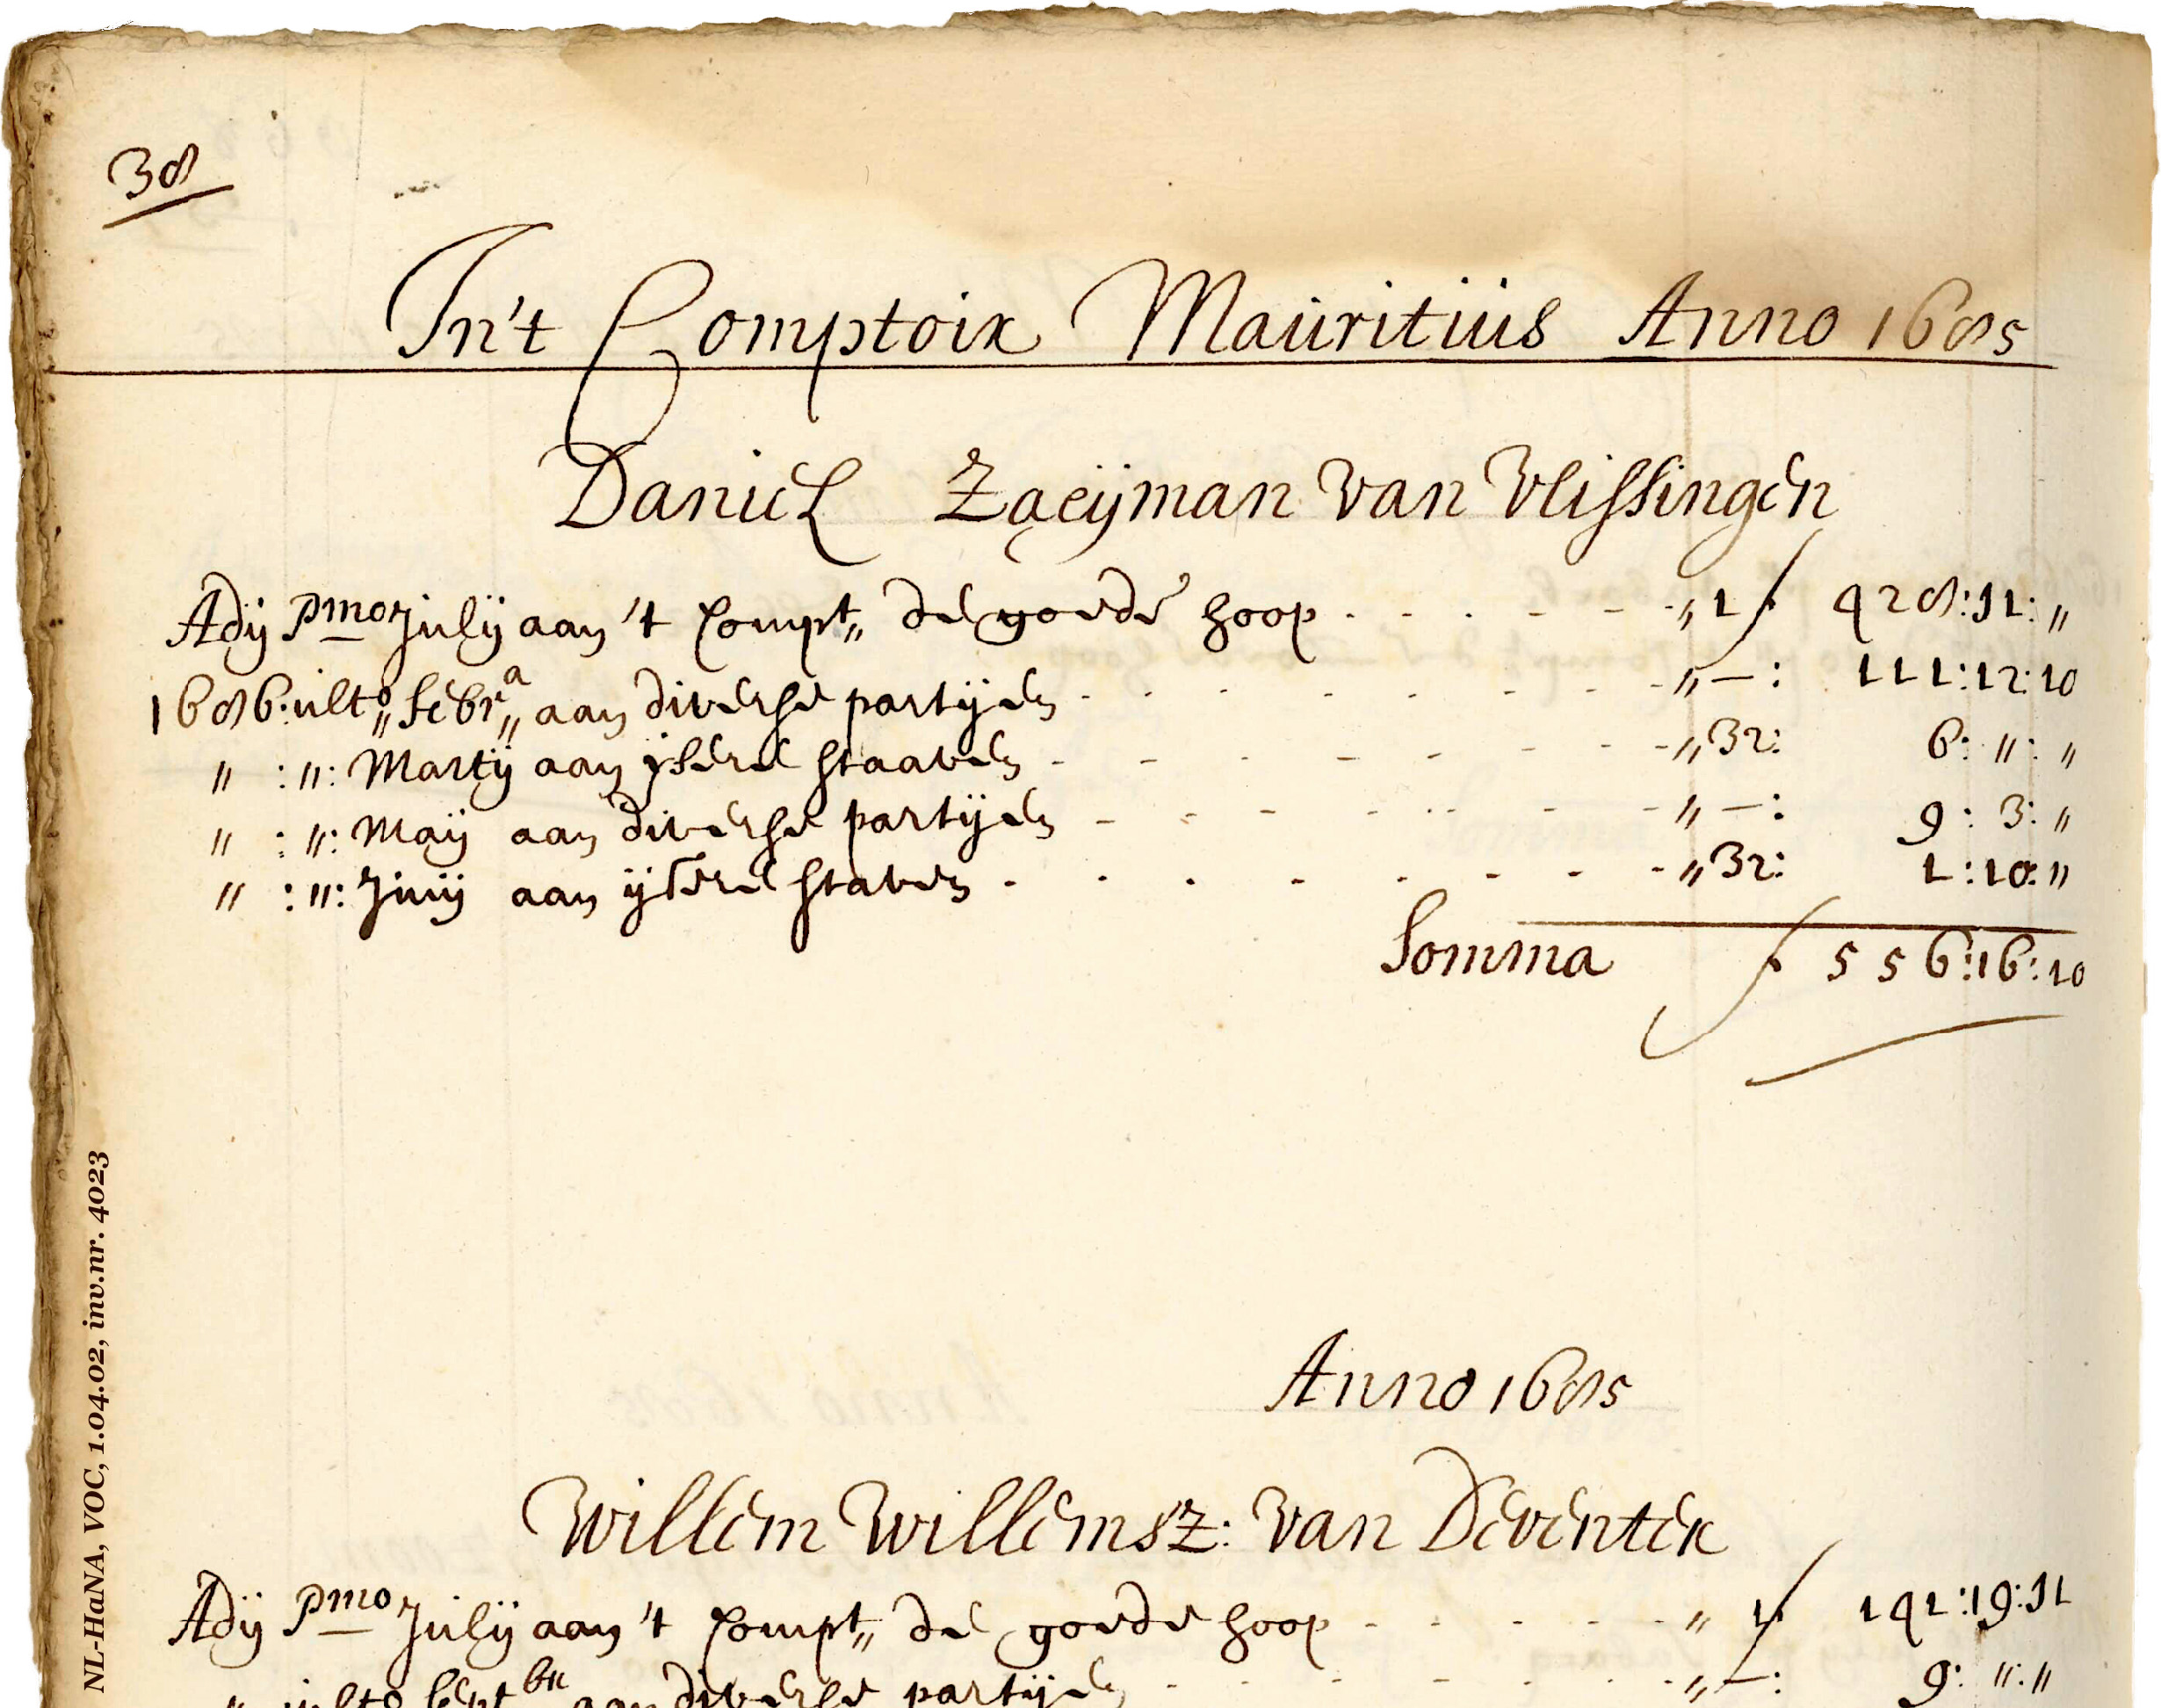 38
In't Comptoir Mauritius Anno 1685
Daniel Zaeijman van Vlissingen
Adij Pmo Julij aan 't Compt„ de goede hoop . . . . . . „ 1 ƒ 428:11: „
1686: ult„o febr„a aan diverse partijen . . . . . . . . „ — : 111:12:10
„ : „ : Martij aan ijsere staaven . . . . . . . . „ 32: 6: „ : „
„ : „ : Maij aan diverse partijen . . . . . . . . „ — : 9: 3: „
„ : „ : Junij aan ijsere staven . . . . . . . . „ 32: 1:10: „
Somma ƒ 556:16:10
Anno 1685
Willem Willemsz: van Deventer
Adij Pmo Julij aan 't Compt„ de goede hoop . . . . . „ 1 ƒ 141:19:11
„ ulto Septbr aan diverse partijen . . . . . . „ — : 9: „ : „
NL-HaNA, VOC, 1.04.02, inv.nr. 4023